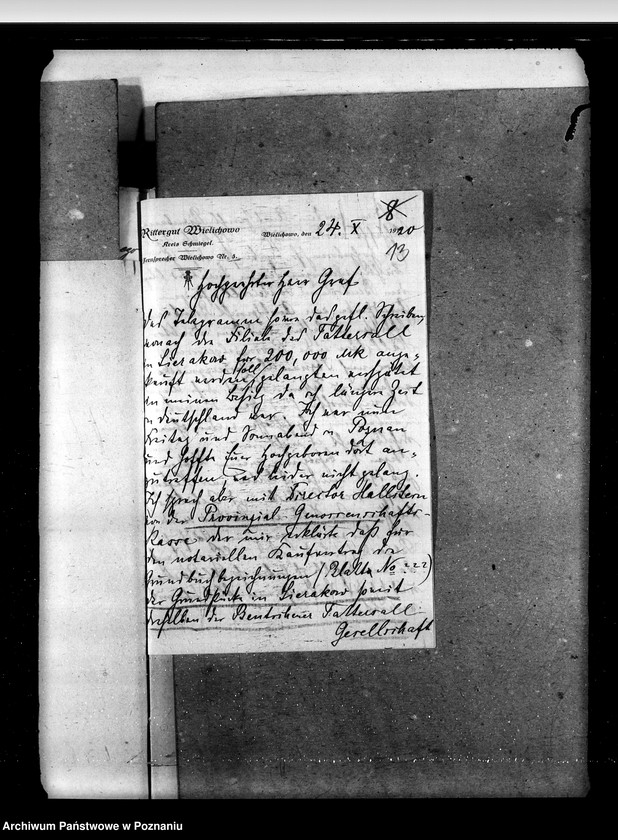 8
Rittergut Wielichowo
Wielichowo, den 24. X 1920
Kreis Schmiegel.
13
Fernsprecher Wielichowo Nr. 5.
Hochgeehrter Herr Graf
das Telegramm sowie das gefl. Schreiben,
wonach die Filiale des Tattersall
in Sierakow für 200,000 Mk ange-
kauft werden soll gelangten verspätet
in meinen Besitz da ich längere Zeit
in Deutschland war. Ich war nun
Freitag und Sonnabend in Poznan
und hoffte Euer Hochgeboren dort an-
zutreffen, was leider nicht gelang.
Ich sprach aber mit Director
von der Provinzial-Genossenschafts-
kasse der mir erklärte daß für
den notariellen Kaufvertrag die
Grundbuchbezeichnungen No ???)
der Grundstücke in Sierakow soweit
dieselben der Bentschener Tattersall-
Gesellschaft
Archiwum Państwowe w Poznaniu